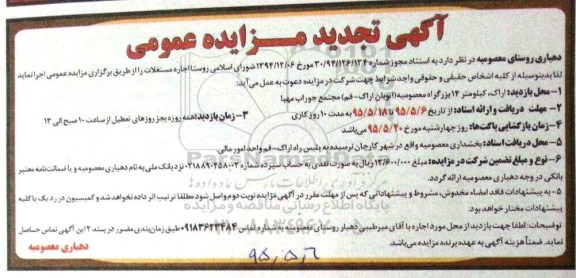 آگهی تجدید مــزایده عمومی
دهیاری روستای معصومیه در نظر دارد به استناد مجوز شماره ۳۰/۹۴/۱۲۶/۱۳۴ مورخ ۱۳۹۴/۱۲/۰۶ شورای اسلامی روستا اجاره مستغلات را از طریق برگزاری مزایده عمومی اجرا نماید
لذا بدینوسیله از کلیه اشخاص حقیقی و حقوقی واجد شرایط جهت شرکت در مزایده دعوت به عمل می‌آید:
۱- محل بازدید: اراک، کیلومتر ۱۴ بزرگراه معصومیه (اتوبان اراک - قم) مجتمع جوراب مهیا
۲- مهلت دریافت و ارائه اسناد: از تاریخ ۹۵/۵/۶ تا ۹۵/۵/۱۸ به مدت ۱۰ روز کاری ۳- زمان بازدید: همه روزه بجز روزهای تعطیل از ساعت ۱۰ صبح الی ۱۳
۴- زمان بازگشایی پاکت‌ها: روز چهارشنبه مورخ ۹۵/۵/۲۰ می‌باشد
۵- محل دریافت اسناد: بخشداری معصومیه واقع در شهر کارچان نرسیده به پلیس راه اراک- قم واحد امور مالی
۶- نوع و مبلغ تضمین شرکت در مزایده: مبلغ ۱۳/۶۰۰/۰۰۰ ریال به صورت نقدی به حساب سپرده شماره نزد بانک ملی به نام دهیاری معصومیه و یا ضمانت‌نامه معتبر
بانکی در وجه دهیاری معصومیه ارائه گردد.
به پیشنهادات فاقد امضاء مخدوش، مشروط و پیشنهاداتی که پس از مهلت مقرر در آگهی مزایده نوبت دوم واصل شود مطلقا ترتیب اثر داده نخواهد شد و کمیسیون در رد یک یا کلیه
پیشنهادات مختار خواهد بود.
توضیحات: لطفا جهت بازدید از محل مورد اجاره با آقای میرطیبی دهیار روستای معصومیه به شماره تماس ۰۹۱۸۳۶۲۳۴۸۴ طبق زمان‌بندی مقرر در بند ۲ این آگهی تماس حاصل
نمایند. ضمناً هزینه آگهی به عهده برنده مزایده می‌باشد.
دهیاری معصومیه
۹۵،۵،۶